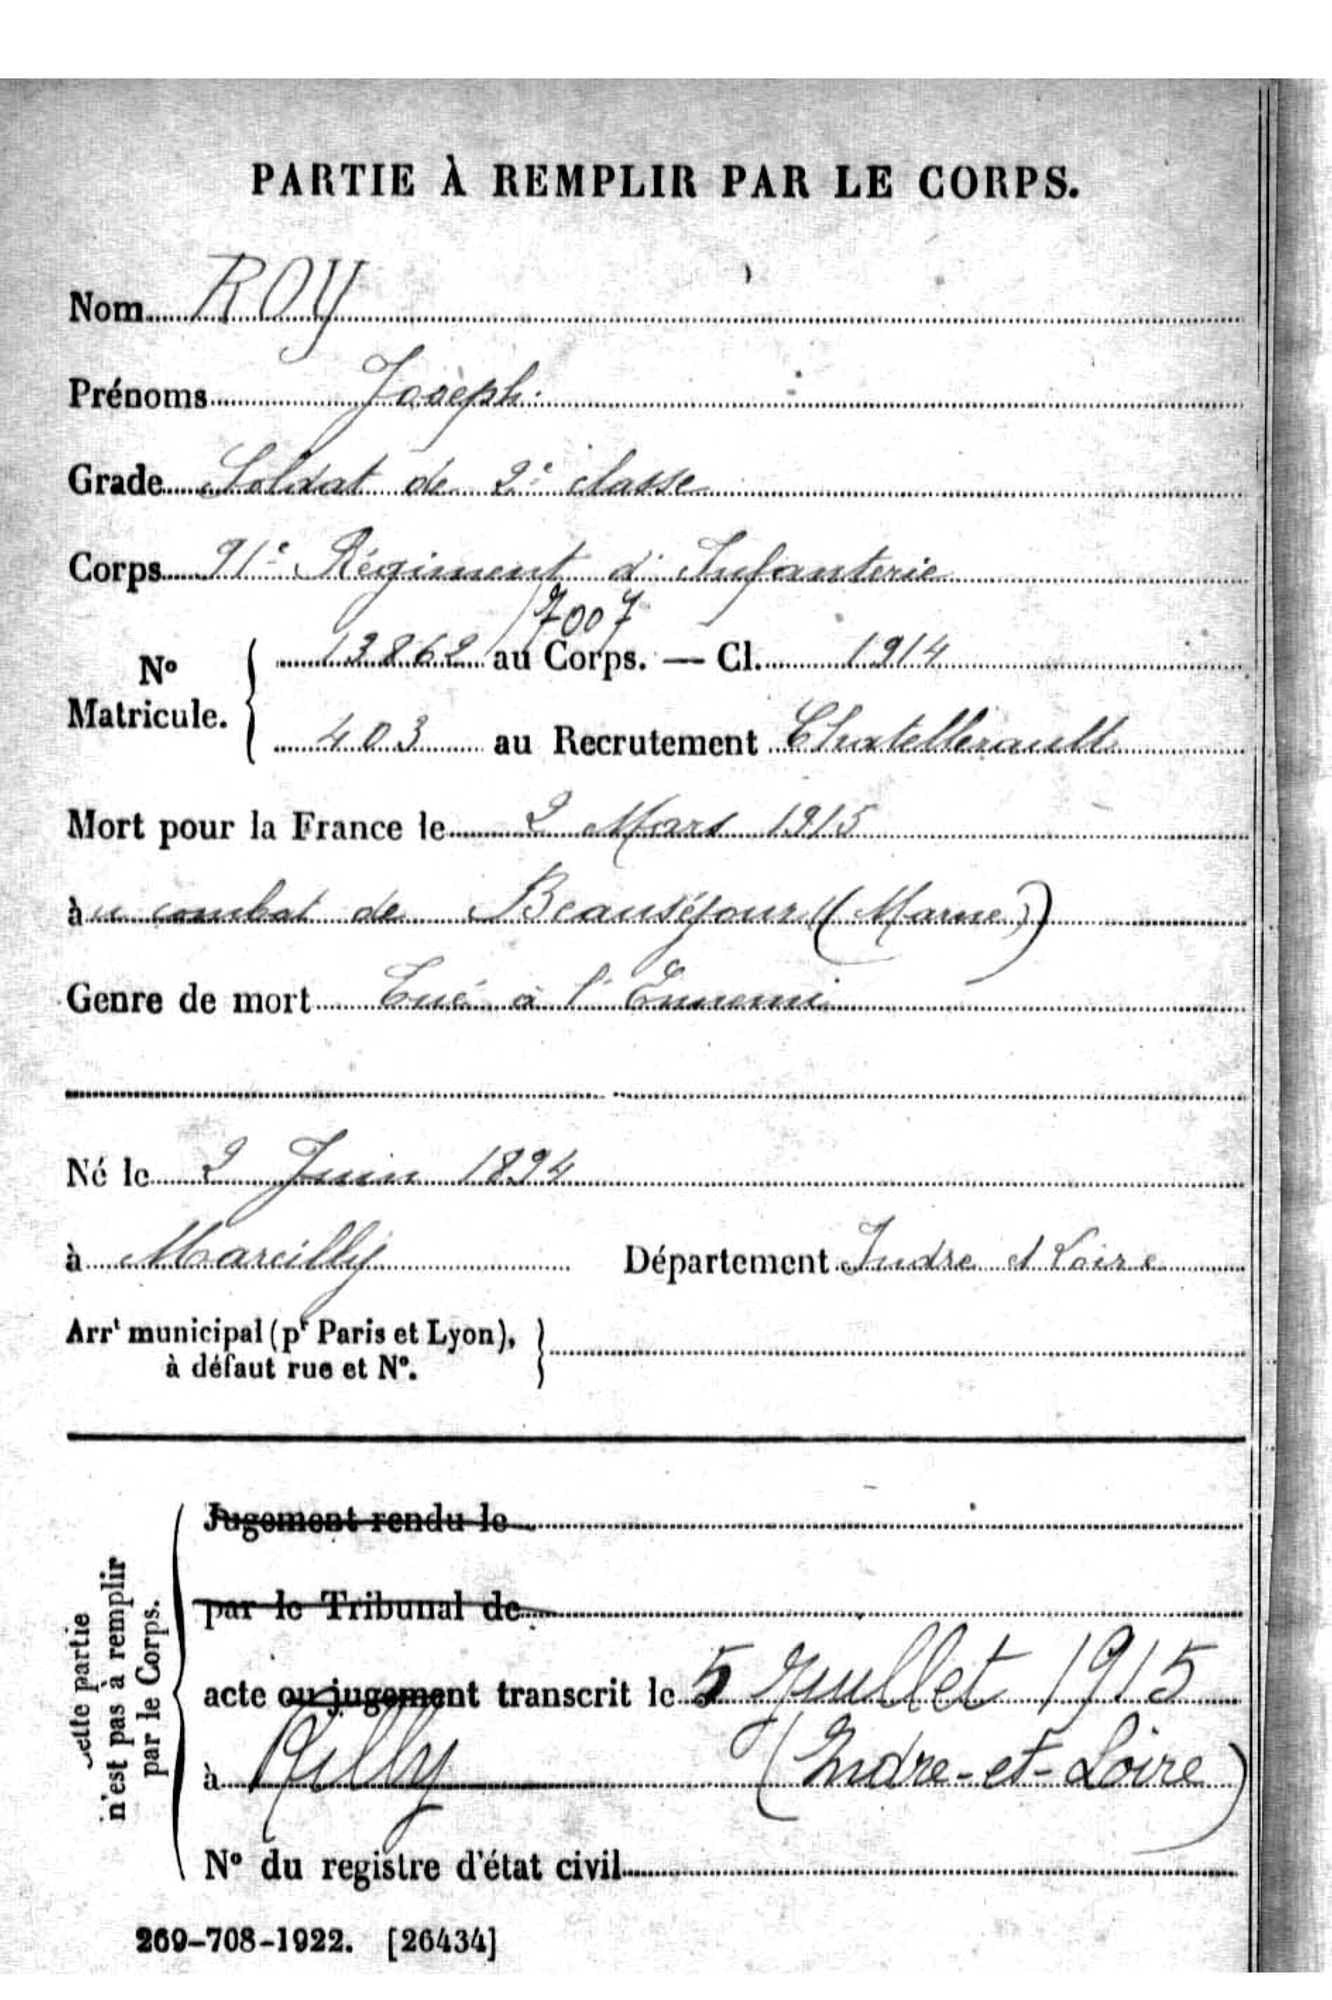 PARTIE À REMPLIR PAR LE CORPS.
Nom ROY
Prénoms Joseph
Grade Soldat de 2e classe
Corps 91e Régiment d'Infanterie
7007
N° Matricule. 13862 / au Corps. — Cl. 1914
403 au Recrutement Chatellerault
Mort pour la France le 2 Mars 1915
à u combat de Beauséjour (Marne)
Genre de mort Tué à l'Ennemi
Né le 2 Juin 1894
à Marcilly Département Indre et Loire
Arrt municipal (pr Paris et Lyon),
à défaut rue et N°.
Cette partie
n'est pas à remplir
par le Corps.
Jugement rendu le
par le Tribunal de
acte ou jugement transcrit le 5 Juillet 1915
à Rilly (Indre-et-Loire)
N° du registre d'état civil
269-708-1922. [26434]